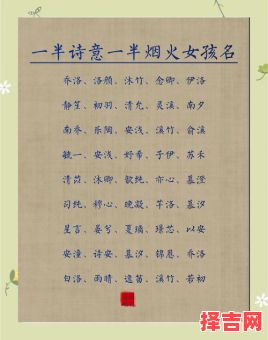 一半诗意一半烟火女孩名
乔洛、洛颜、沐竹、念卿、伊洛
静笙、初羽、清允、灵溪、南夕
南乔、乐陶、安浅、溪竹、俞溪
毓一、安浅、好希、于伊、苏禾
清菏、沐卿、歆纯、亦心、慕澄
司纯、穆心、晚凝、芊洛、慕汐
星言、晏兮、夏璃、璟芯、以安
安潼、诗安、慕汐、锦恩、乔洛
白洛、雨晴、逸茜、溪竹、若初
择吉网